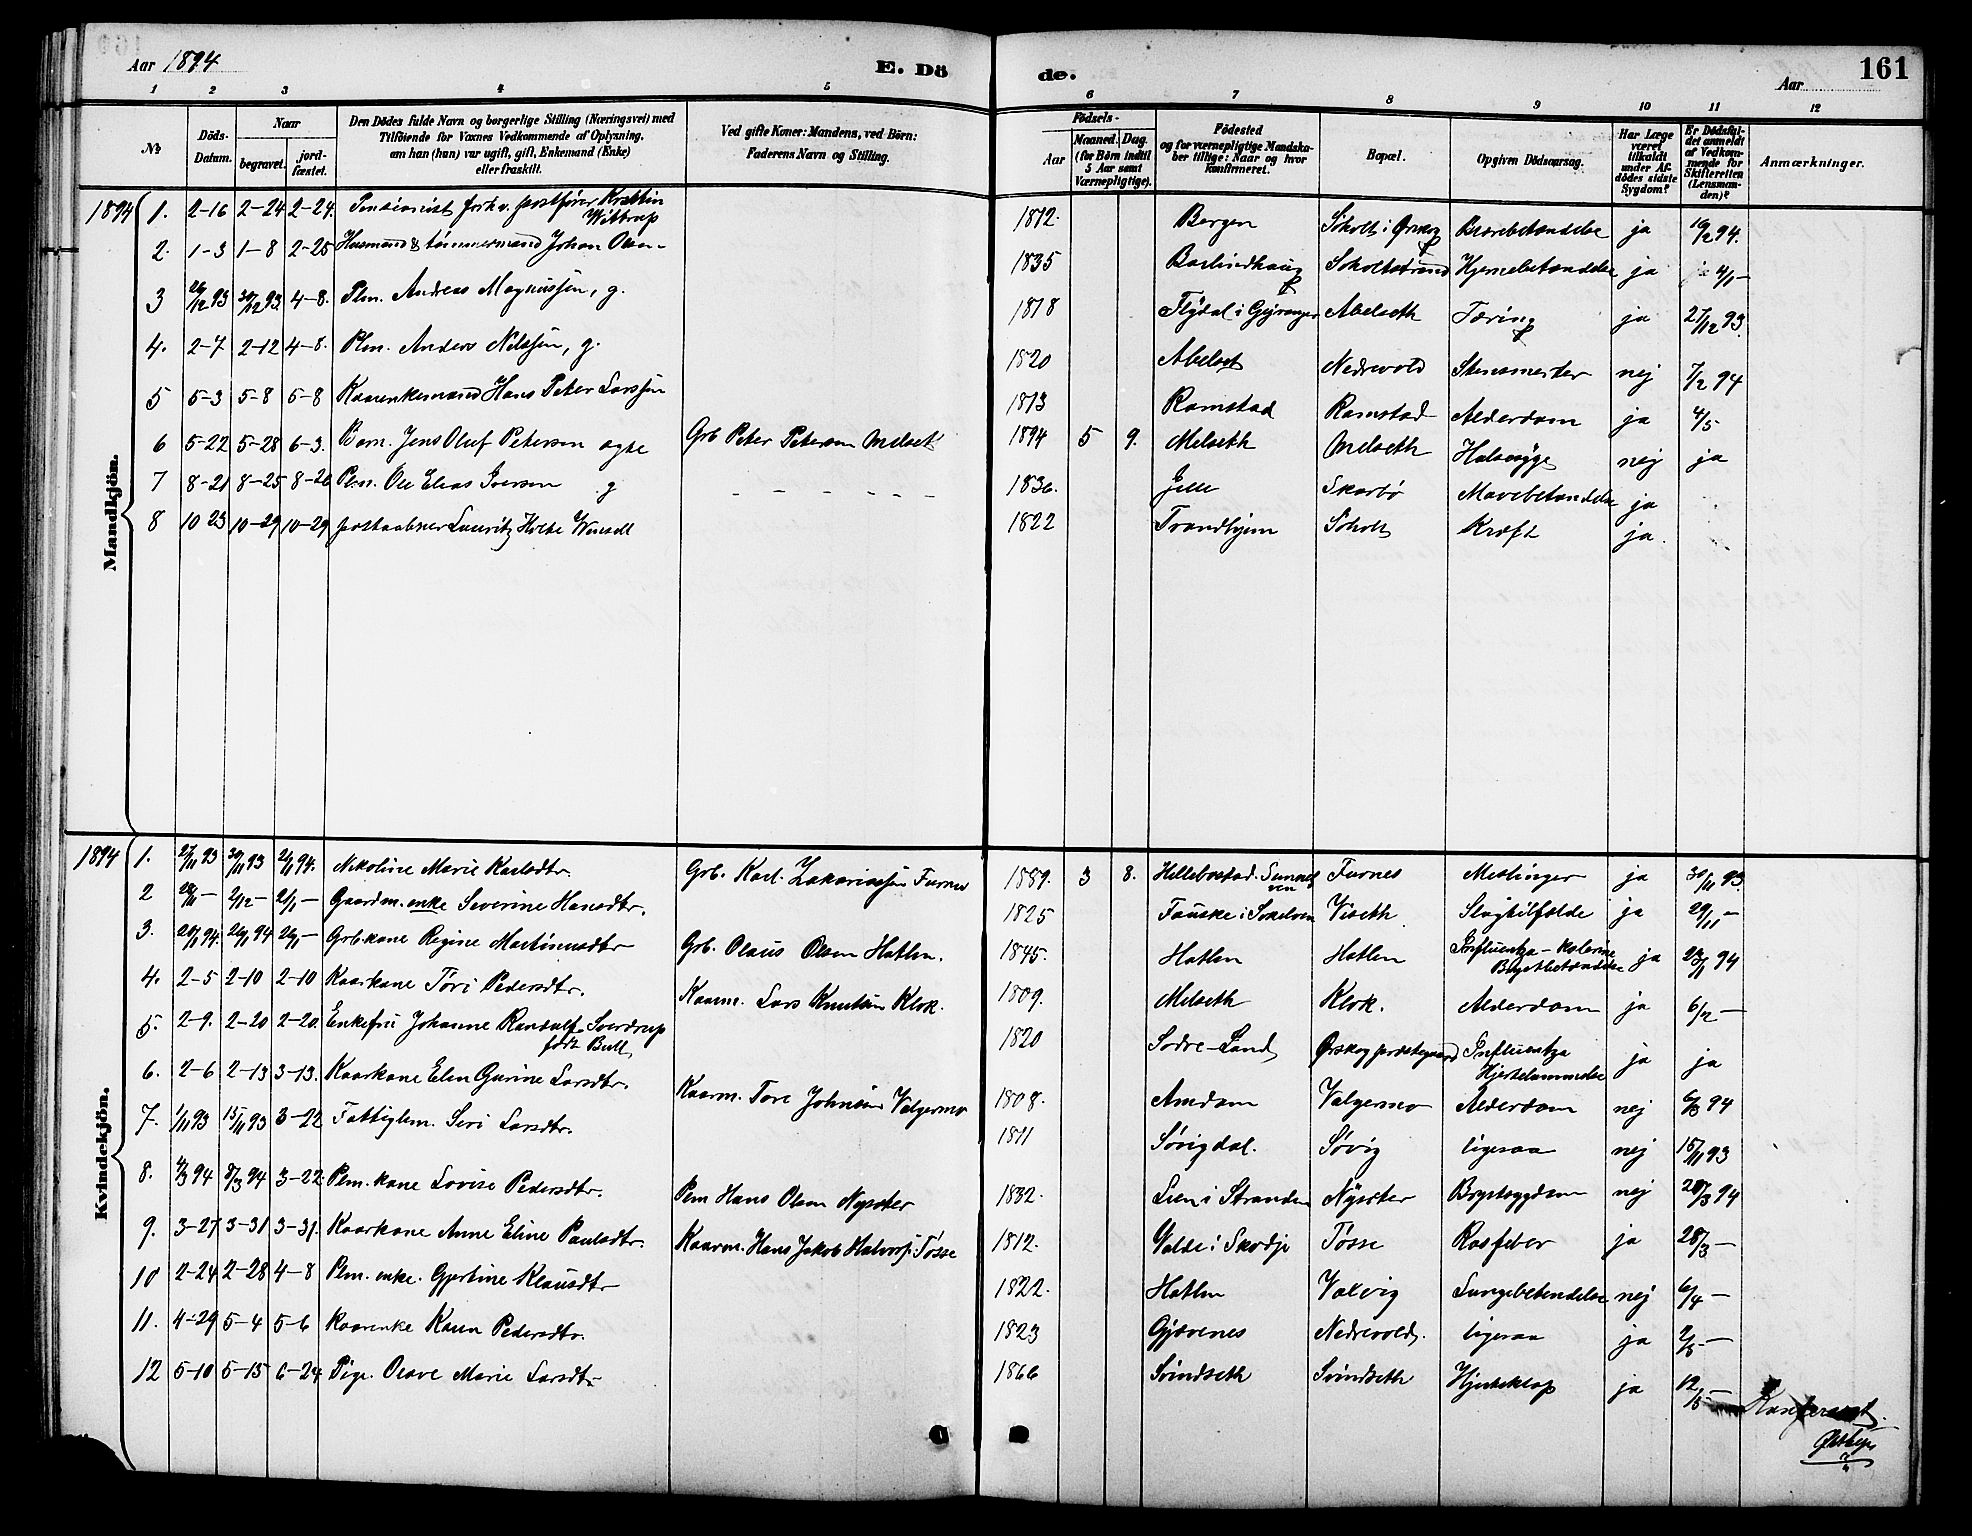 Aar 1894 E. Dö de. Aar 161
1 2 3 4 5 6 7 8 9 10 11 12
№ Döds-Datum. Naar begravet. jordfæstet. Den Dödes fulde Navn og borgerlige Stilling (Næringsvei) med Tilföiende for Voxnes Vedkommende af Oplysning, om han (hun) var ugift, gift, Enkemand (Enke) eller fraskilt. Ved gifte Koner: Mandens, ved Börn: Faderens Navn og Stilling. Födsels- Aar Maaned. Dag. (for Börn indtil 5 Aar samt Værnepligtige). Födested og for værnepligtige Mandskaber tillige: Naar og hvor Konfirmeret. Bopæl. Opgiven Dödsaarsag. Har Læge været tilkaldt under Afdödes sidste Sygdom? Er Dödsfaldet anmeldt af Vedkommende for Skifteretten (Lensmanden)? Anmærkninger.
Mandkjön.
1894 1. 2-16 2-24 2-24 Pensionist forhv. postfører Kristin Wittrup 1812. Bergen Søholt i Ørskog ja 16/2 94.
2. 1-3 1-8 2-25 Husmand & tømmermand Johan Olsen 1835 Søholtstrand Hjernebetændelse ja 4/1 -
3 26/12 93 30/12 93 4-8. Plm. Andreas Magnussen, g. 1818 Flydal i Gejranger Abelseth Tæring ja 27/12 93.
4. 2-7 2-12 4-8. Plm. Anders Nilssen, g. 1820 Abelset Nedrevold Stensmerter nej 7/2 94
5 5-3 5-8 5-8 Kaarenkemand Hans Peter Larssen 1813 Ramstad Ramstad Alderdom ja 4/5
6 5-22 5-28 6-3. Barn. Jens Oluf Petersen ægte Grb Peter Petersen Melset 1894 5 9. Melseth Melseth Halssyge nej ja
7 8-21 8-25 8-26 Plm. Ole Elias Iversen g - - - - - - 1836. Gjelle Skarbø Mavebetændelse ja
8 10 23 10-29 10-29 postaabner Lauritz Holte Wensell 1822 Trondhjem Søholt Kræft ja.
Kvindekjön.
1894 1. 27/11 93 30/11 93 2/1 94. Nikoline Marie Karlsdtr. Grb. Karl Zakariassen Furnes 1889. 3 8. Hellebostad. Furnes Meslinger ja 30/11 93.
2 28/11 - 2/12 - 2/1 - Gaardm. enke Severine Hansdtr. 1825 Fauske i Søkelven Viseth Slagtilfælde ja 29/11 -
3. 20/1 94. 26/1 94 26/1 - Grb.kone Regine Martinusdtr Grb. Olaus Olsen Hatlen. 1845. Hatlen Hatlen Influentza - Kolerine Brystbetændelse ja 23/1 94
4. 2-5 2-10 2-10 Kaarkone Tøri Pedersdtr. Kaarm. Lars Knutsen Klok. 1809. Melseth Klok. Alderdom ja 6/2 -
5. 2-9. 2-20 2-20. Enkefru Johanne Randulf Sverdrup født Bull 1820 Søndre-Land Ørskog prestegaard Influentza Hjertelammelse ja ja
6. 2-6 2-13 3-13. Kaarkone Elen Gurine Larsdtr. Kaarm. Tore Johnsen Valgermo 1808. Amdam Valgermo Alderdom nej 6/3 94
7. 1/11 93 15/11 93 3-22 Fattiglem. Seri Larsdtr. 1811 Søvigdal. Søvig ligesaa nej 15/11 93
8. 4/3 94 8/3 94 3-22 Plm. kone Lovise Pedersdtr. Plm Hans Olsen Nysæter 1832. Lien i Stranden Nysæter Brystsygdom nej 20/3 94
9. 3-27 3-31 3-31. Kaarkone Anne Eline Paulsdtr. Kaarm. Hans Jakob Halvorss. Tøsse 1812. Valde i Skodje Tøsse Rosfeber ja 28/3 -
10 2-24 2-28 4-8 Plm. enke. Gjertine Klausdtr 1822. Hatlen Valvig Lungebetendelse nej 6/4 -
11. 4-29 5-4 5-6 Kaarenke Karen Pedersdtr. 1823 Gjævenes Nedrevold. ligesaa ja 2/5 -
12 5-10 5-15 6-24 Pige. Olave Marie Larsdtr. 1866 Svindseth Svindseth Hjerteslag ja 12/5 -
Konfereret.